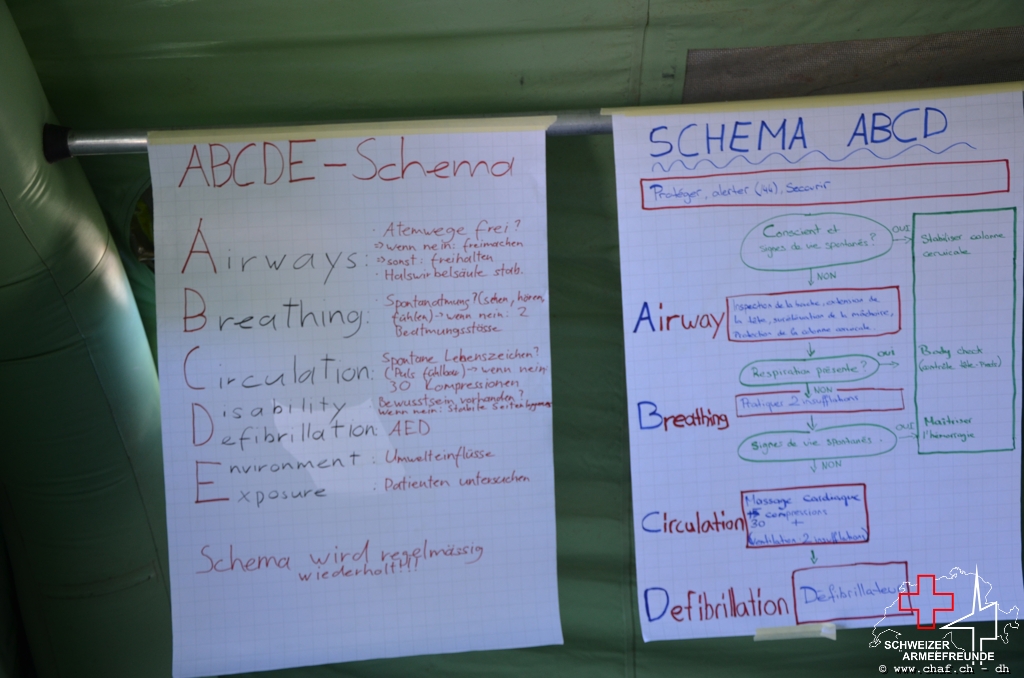 ABCDE-Schema
Airways:
· Atemwege frei?
→ wenn nein: freimachen
→ sonst: freihalten
· Halswirbelsäule stab.
Breathing:
· Spontanatmung? (sehen, hören,
fühlen) → wenn nein: 2
Beatmungsstösse
Circulation:
Spontane Lebenszeichen?
(Puls fühlbar) → wenn nein
30 Kompressionen
Disability
Bewusstsein vorhanden?
Wenn nein: Stabile Seitenlagerung
Defibrillation: AED
Environment : Umwelteinflüsse
Exposure : Patienten untersuchen
Schema wird regelmässig
wiederholt!!!
SCHEMA ABCD
Protéger, alerter (144), Secourir
Conscient et
signes de vie spontanés?
OUI
NON
Stabiliser colonne
cervicale
Airway
Inspection de la bouche, extension de
la tête,
Protection de la colonne cervicale
Respiration présente?
OUI
NON
Body check
(contrôle tête-pieds)
Breathing
Pratiquer 2 insufflations
Signes de vie spontanés.
OUI
NON
Maîtriser
l'hémorragie
Circulation
Massage Cardiaque
compressions
30 +
Ventilation 2 insufflations)
Defibrillation
Défibrillateur
SCHWEIZER
ARMEEFREUNDE
© www.chaf.ch - dh